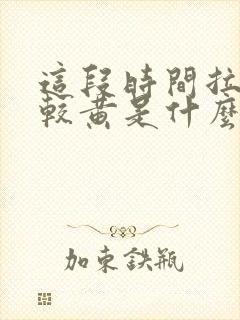 這段時間拉
較黃是什麼
加東鉄瓶